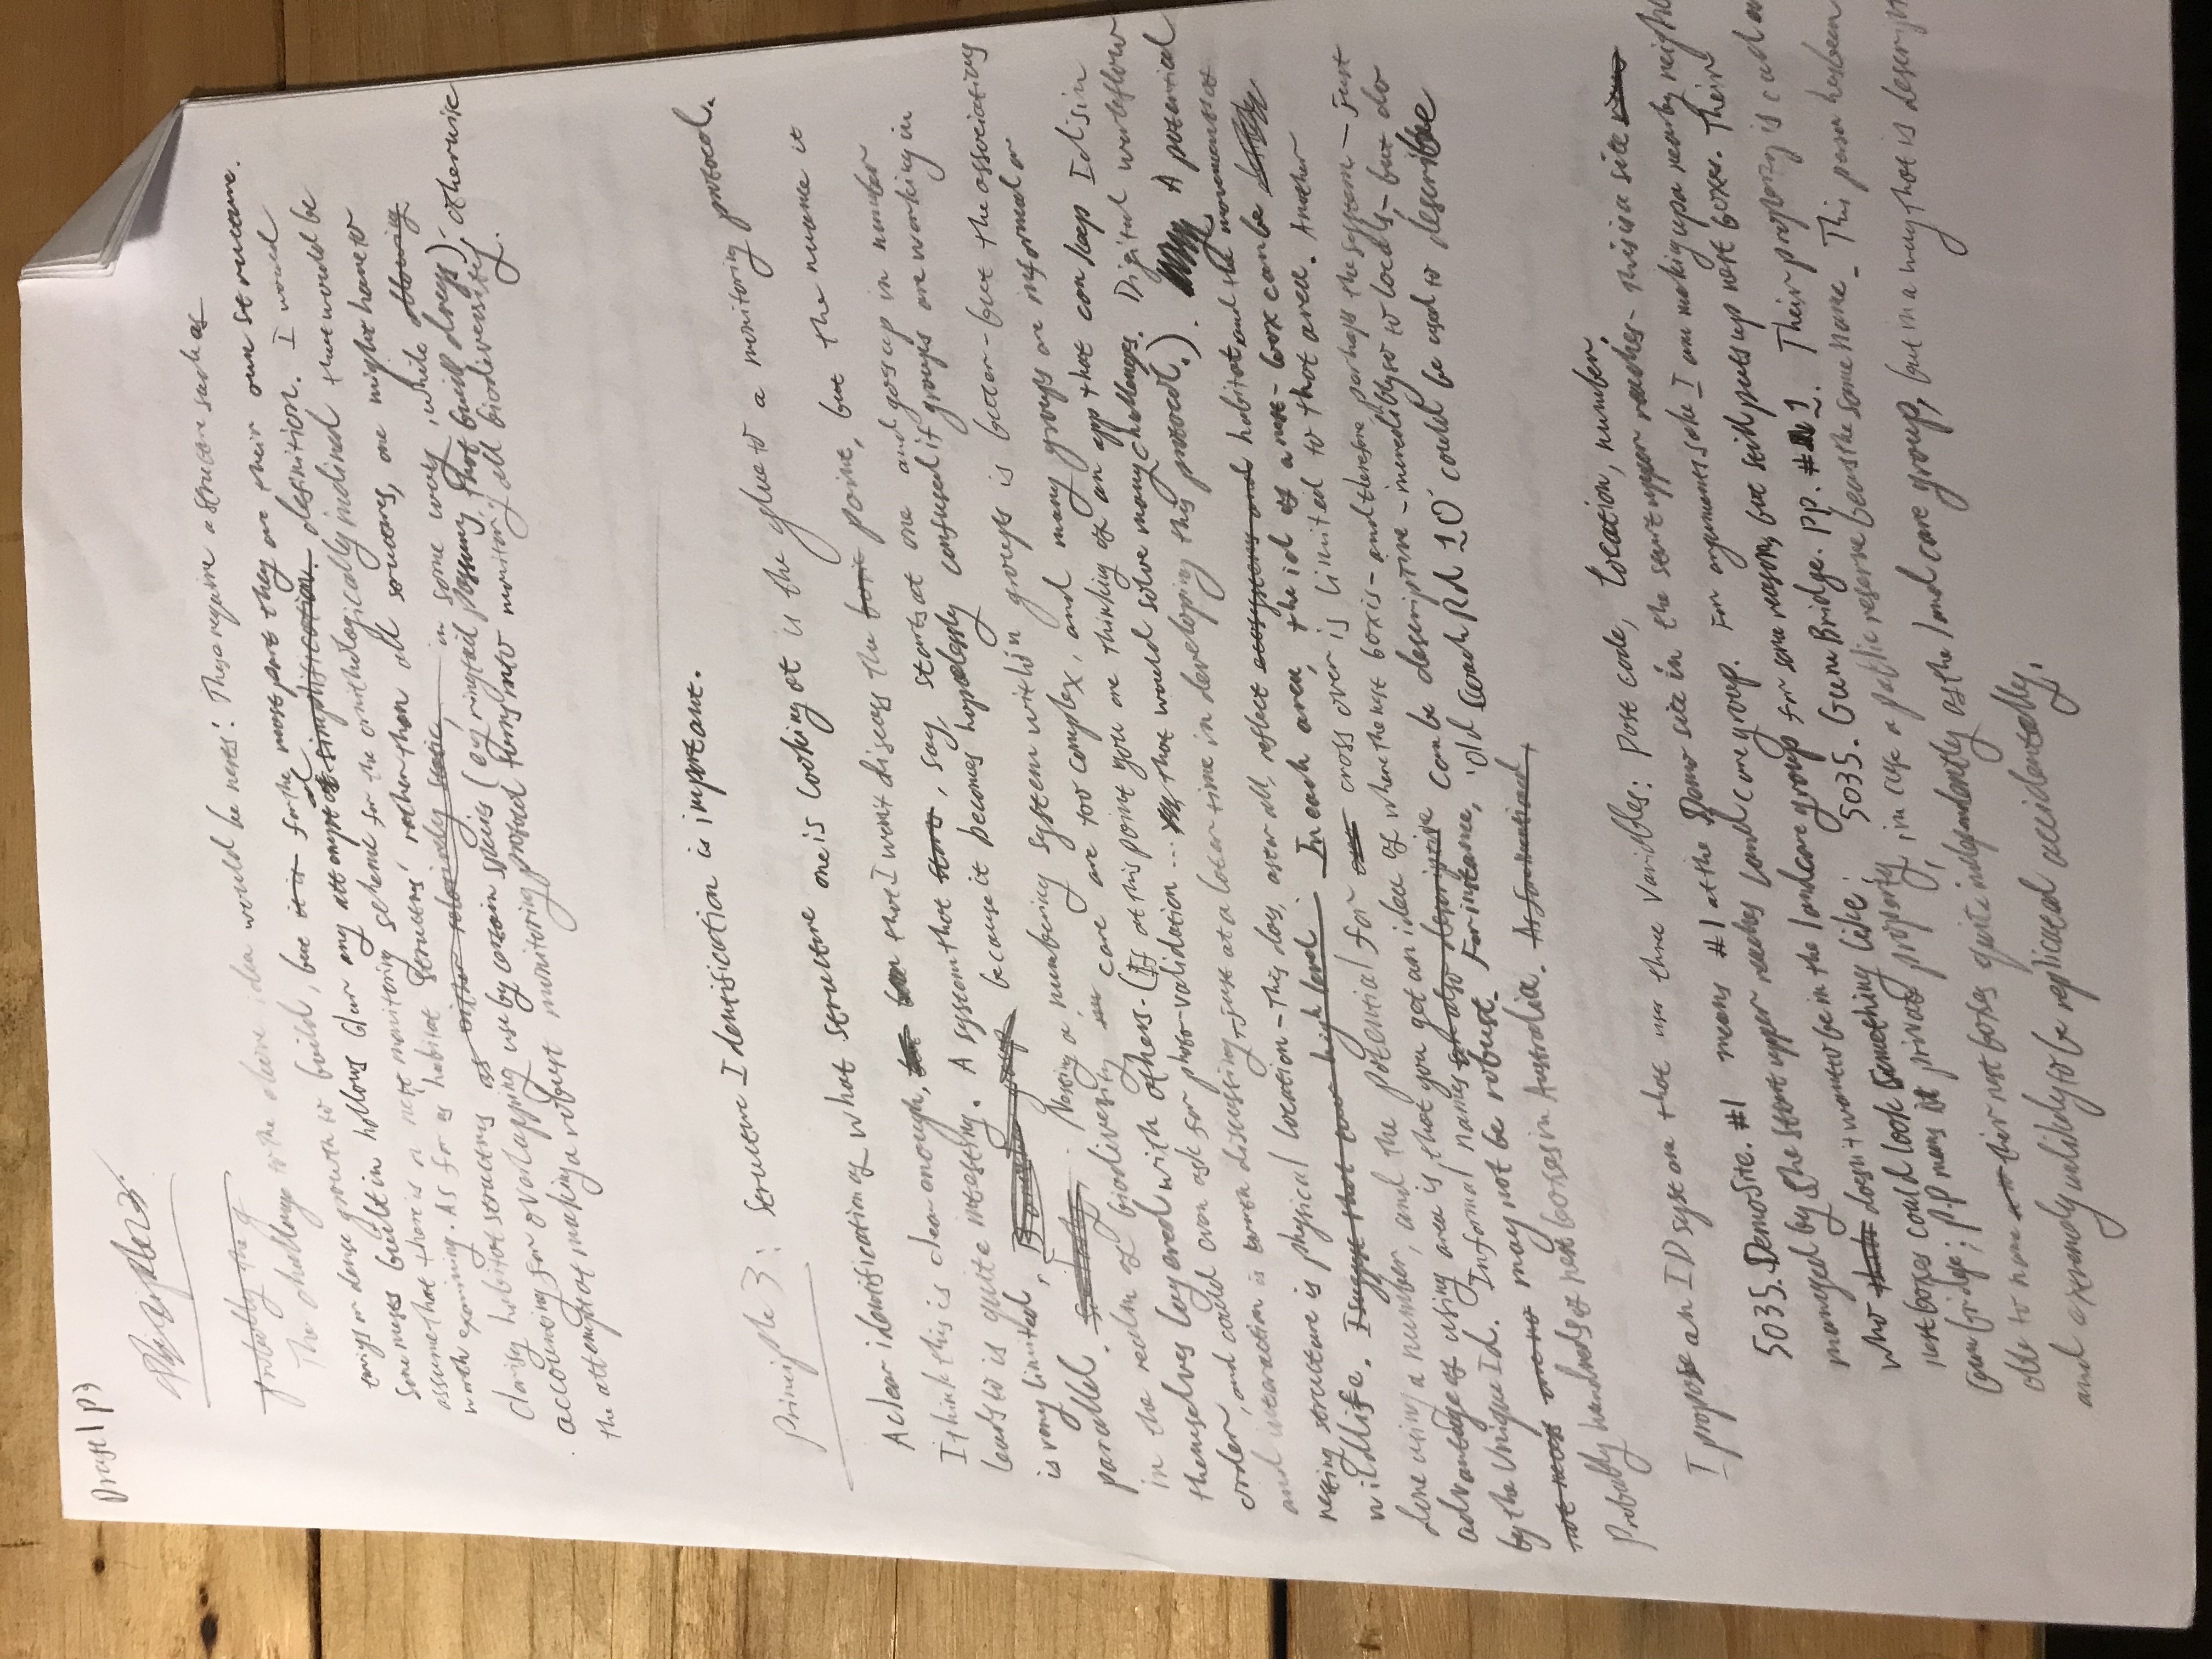 Draft 1 p3
Principle 3:
Probably the g
The challenge to the above idea would be nests! These require a structure such as
twigs or dense growth to build, but it is for the most part they are their own structure.
Some nests built in hollows blur any attempt at simplification. definition. I would
assume that there is a nest monitoring scheme for the ornithologically inclined that would be
worth examining. As for as habitat structres' rather than all structures, one might have to
clarify habitat structres as either relatively static, in some way, while allowing
accounting for overlapping use by certain species (e.g ringtail possums that build dreys); otherwise
the attempt at making a robust monitoring protocol turns into monitoring all biodiversity.
Principle 3: Structure Identification is important.
A clear identification of what structure one is looking at is the glue to a monitoring protocol.
I think this is clear enough, but that I won't discuss the basic point, but the nuance it
leads to is quite intesting. A system that starts, say, starts at one and goes up in number
is very limited, If another group because it becomes hopelessly confused if groups are working in
parallel. Nesting a numbering system within groups is better - but the associations
in the realm of biodiversity in care are too complex, and many groups are informal or
themselves layered with others. (If at this point you are thinking of an app that can keep Ids in
order, and could even ask for photo-validation ... that would solve many challenges. Digital workflow
and interaction is worth discussing, just at a later time in developing this protocol.). A potential
nesting structure is physical location - this does, after all, reflect ecosystems and habitat, and the movements of
wildlife. I suggest that our high level In each area, the id of a nest-box can be
done using a number, and the potential for cross over is limited to that area. Another
advantage of using area is that you get an idea of where the nest box is - and therefore perhaps the system - just
by the Unique Id. Informal names are also descriptive can be descriptive - incredibly so to locals - but do
not necess are no may not be robust. For instance, 'Old Coach Rd 10' could be used to describe
Probably hundreds of nest boxes in Australia. As forementioned,
I propose an ID system that uses three variables: Post code, location, number.
5035. DemoSite. #1 means #1 at the Demo site in the sturt upper reaches - this is a site
managed by the sturt upper reaches landcare group. For arguments sake I am making up a nearby neighb
who doesn't want to be in the landcare group for some reason, but still puts up nest boxes. Their
nest boxes could look something like: 5035. GumBridge. PP. #1. Their property is called
Gum bridge; P.P means it private property, in case a public reserve bears the same name. This person has been
able to name their nest boxes quite independently of the land care group, but in a way that is descript
and extremely unlikely to be replicated accidentally.